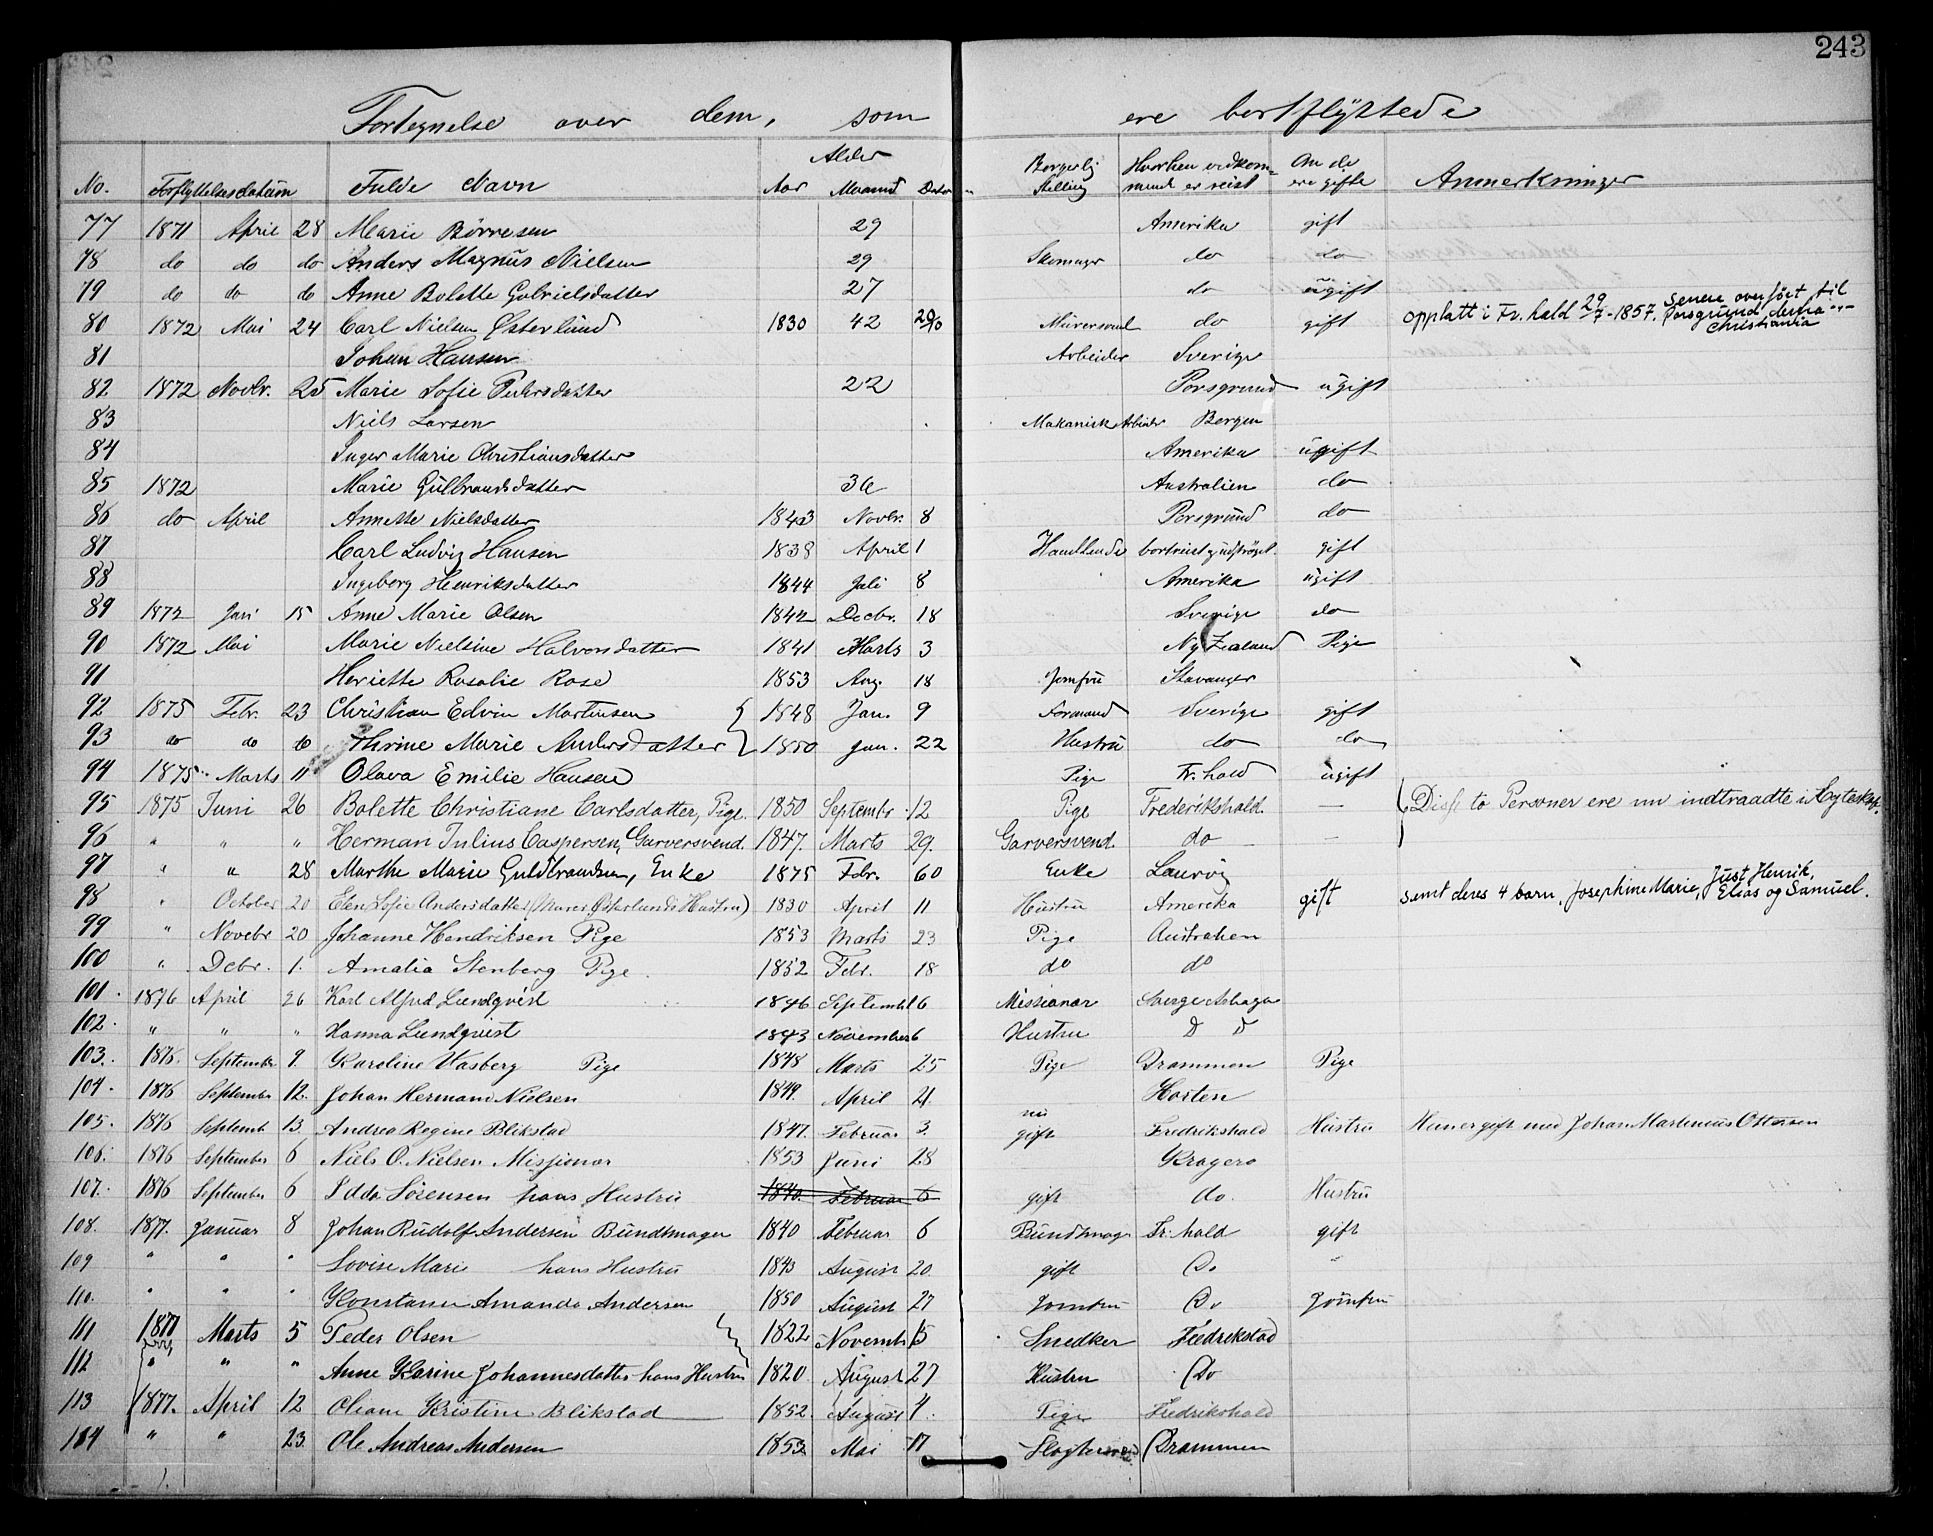 243
Fortegnelse over dem, som ere bortflyttede
No. Forflyttelsesdatum Fulde Navn Alder Aar Maaned Dato Borgerlig Stelling Hvorhen vedkommende er reist Om de ere gifte Anmerkninger
77 1871 April 28 Marie Börresen 29 Amerika gift
78 do do do Anders Magnus Nielsen 29 Skomager do do
79 do do do Anne Bolette Gabrielsdatter 27 do ugift
80 1872 Mai 24 Carl Nielsen Österlund 1830 42 Murersvend do gift opptatt i Fr. hald 29/7-1857. senere overfört til Porsgrund derfra Christiania
81 Johan Hansen Arbeider Sverige
82 1872 Novbr. 25 Marie Sofie Pedersdatter 22 Porsgrund ugift
83 Niels Larsen Mekanisk Arbeider Bergen
84 Inger Marie Christiansdatter Amerika ugift
85 1872 Marie Gulbrandsdatter 36 Australien do
86 do April Annette Nielsdatter 1843 Novbr. 8 Porsgrund do
87 Carl Ludvig Hansen 1838 April 1 Handlende bortreist gift
88 Ingeborg Henriksdatter 1844 Juli 8 Amerika ugift
89 1872 Jan 15 Anne Marie Olsen 1842 Decbr. 18 Sverige do
90 1872 Mai Marie Nielsine Halvorsdatter 1841 Marts 3 Ny Zealand Pige
91 Heriette Rosalie Rose 1853 Aug. 18 Jomfru Stavanger
92 1875 Febr. 23 Christian Edvin Martinsen 1848 Jan. 9 Formand Sverige gift
93 do do do Thrine Marie Andersdatter 1850 Jan. 22 Hustru do do
94 1875 Marts 11 Olava Emilie Hansen Pige Fr. hald ugift
95 1875 Juni 26 Bolette Christiane Carlsdatter, Pige. 1850 Septembr 12 Pige Frederikshald. — Disse to Personer ere nu indtraadte i Ægteskap.
96 " " " Herman Julius Caspersen, Garversvend. 1847. Marts 29. Garversvend. do —
97 " " 28 Marthe Marie Guldbrandsen, Enke 1875 Febr. 60 Enke Laurvig
98 " October 20 Elen Sofie Andersdatter (Murer Österlunds Hustru) 1830 April 11 Hustru Amerika gift samt deres 4 barn, Josephine Marie, Just Henrik, Elias og Samuel.
99 " Novebr 20 Johanne Hendriksen Pige 1853 Marts 23 Pige Australien
100 " Debr. 1. Amalia Stenberg Pige. 1852 Febr. 18 do do
101. 1876 April 26 Karl Alfred Lundqvist 1846 September 16 Missionær Sverge
102. " " " Hanna Lundqvist 1843 November 6 Hustru D D
103. 1876. September 9. Karoline Wasberg Pige 1848 Marts 25 Pige Drammen Pige
104. 1876 September 12. Johan Hermand Nielsen 1849. April 21. Horten
105. 1876 Septemb 13. Andrea Regine Blikstad 1847. Februar 3. nu gift Fredrikshald Hustru Hun er gift med Johan Martinius Ottersen
106. 1876 September 6 Niels O. Nielsen Missionær 1853 Juni 28 Kragerø
107. 1876 September 6 Edda Sörensen hans Hustru 1840. Februar 6 gift do. Hustru
108. 1877. Januar 8 Johan Rudolf Andersen Bundtmager 1840 Februar 6 Bundtmag. Fr. hald gift
109 " " " Lovise Marie hans Hustru 1843 August 20. gift Do "
110. " " " Konstance Amanda Andersen 1850 August 27 Jomfru Do Jomfru
111 1877 Marts 5 Peder Olsen 1822 Novemb 15 Snedker Fredrikstad
112 " " " Anne Karine Johannesdatter hans Hustru 1820. August 27 Hustru Do
113 1877. April 12 Oleane Kristine Blikstad 1852. August 4. Pige Fredrikshald
114 " " 23. Ole Andreas Andersen 1852 Mai 17 Slagtersvend Drammen